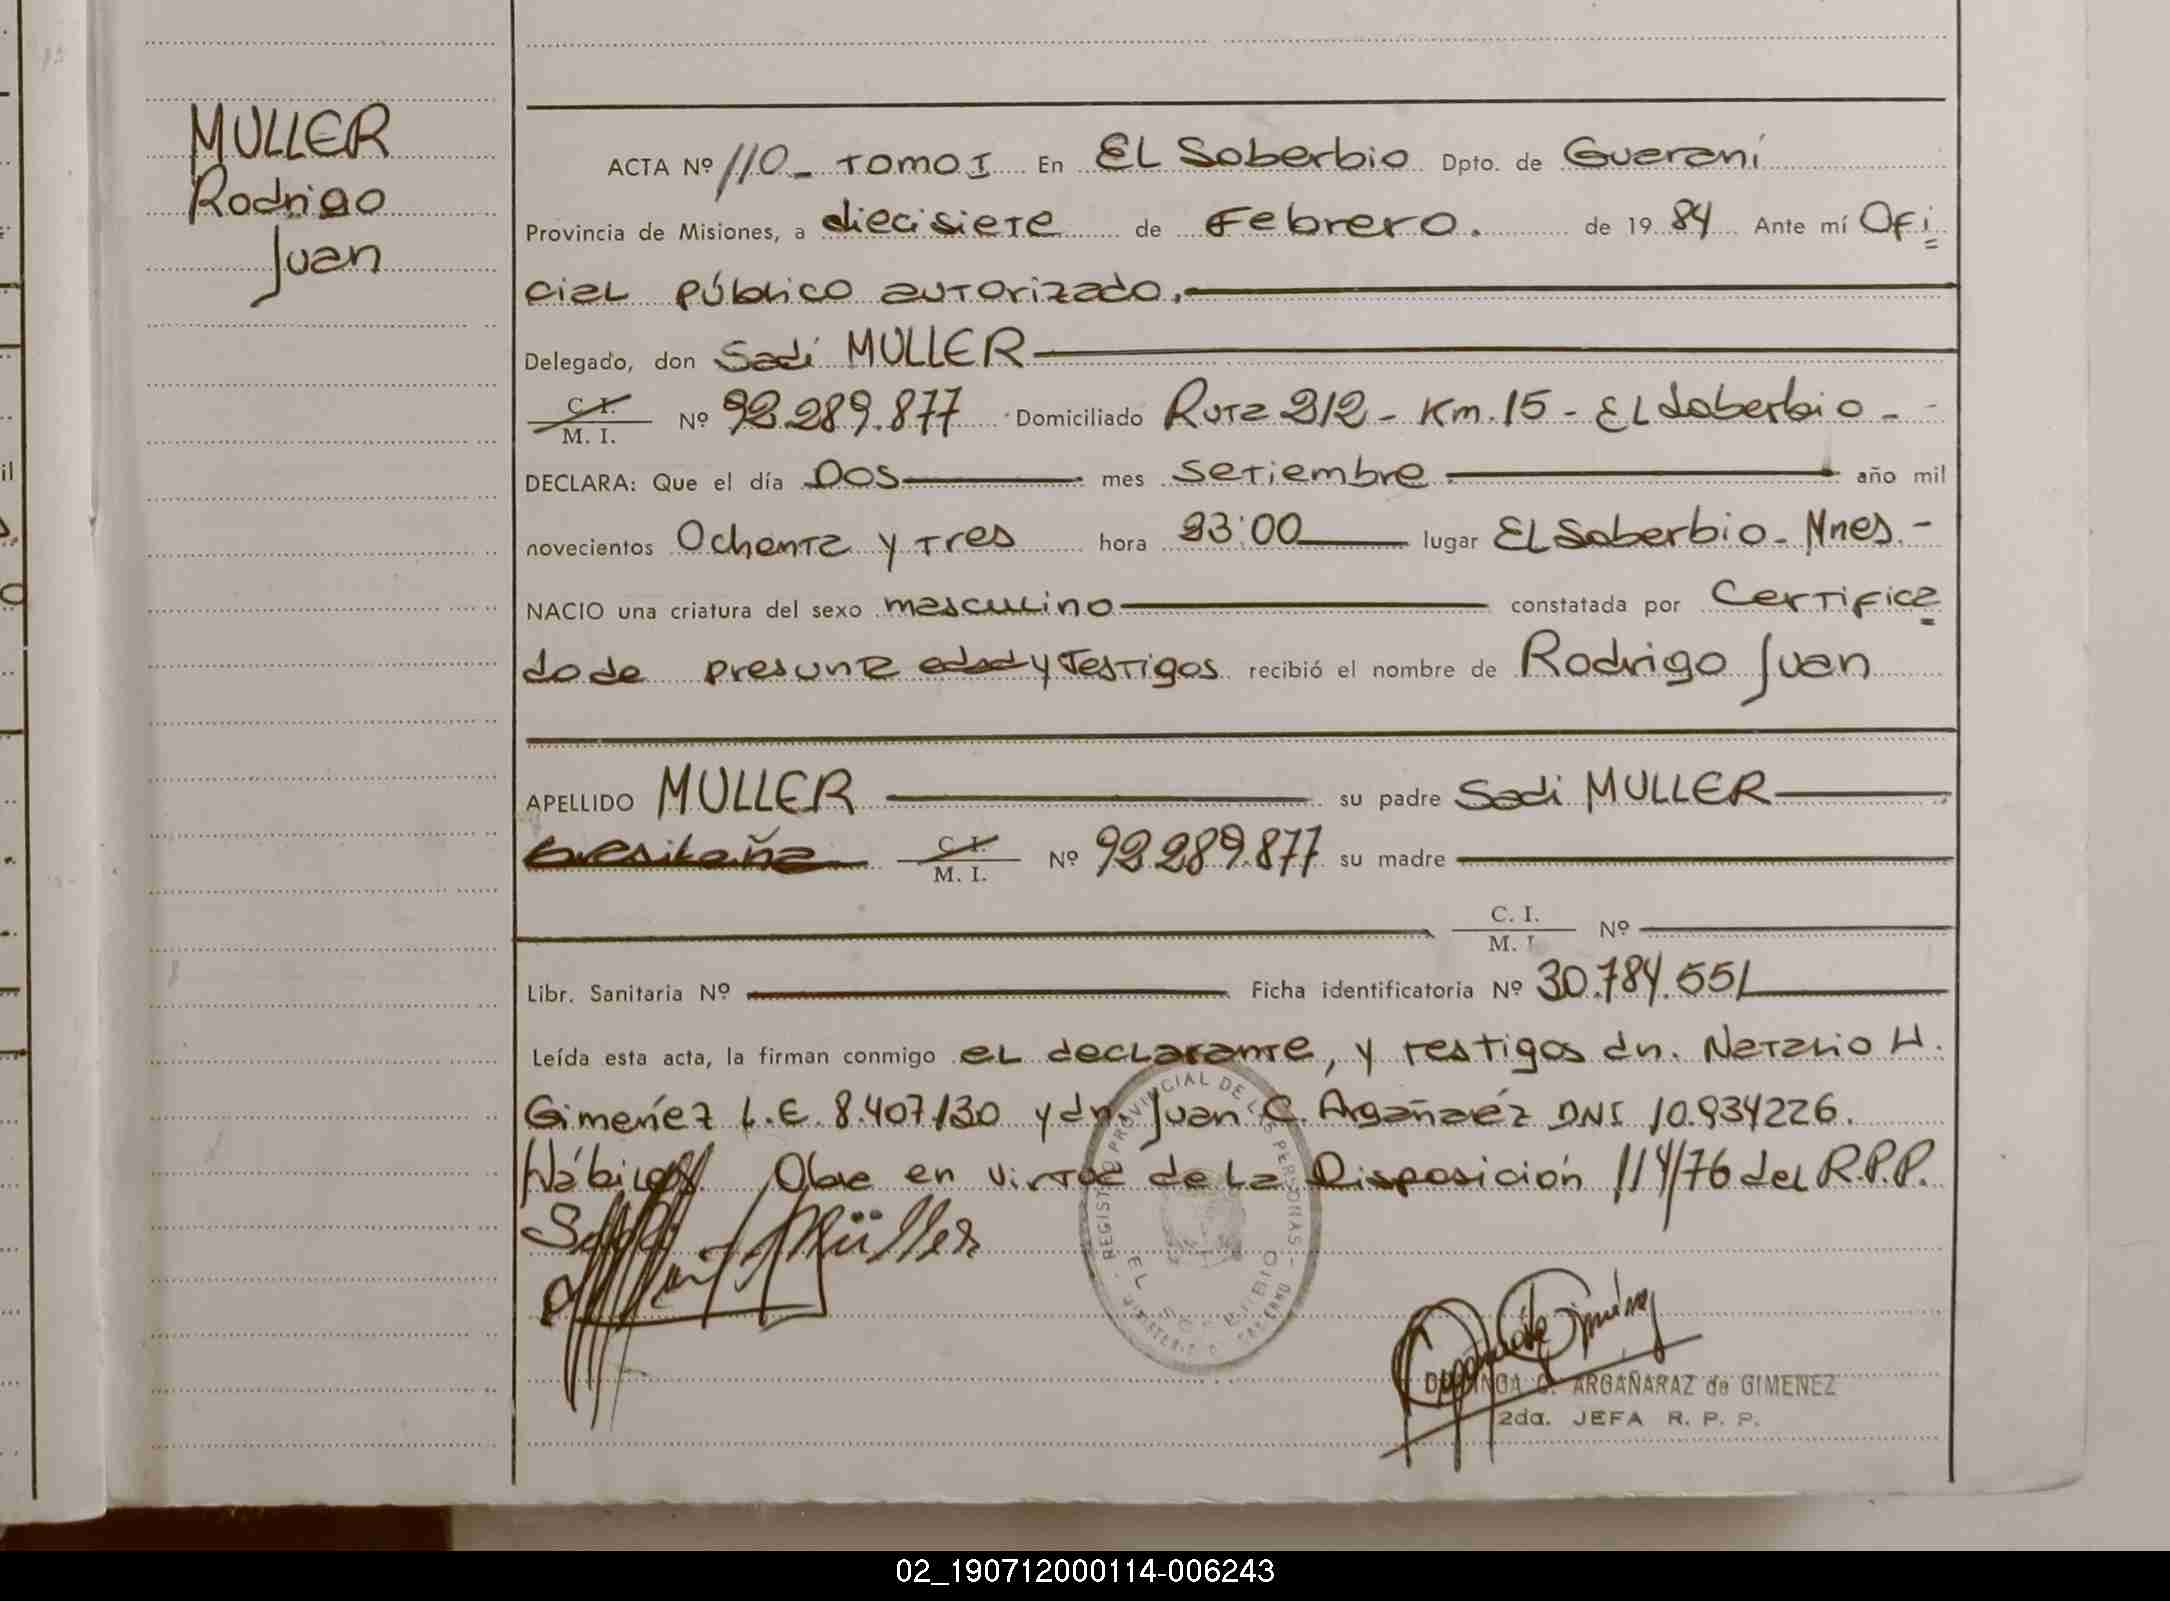 MULLER
Rodrigo
Juan
ACTA Nº 110_ TOMO I En EL Soberbio Dpto. de Guarani
Provincia de Misiones, a diecisiete de Febrero. de 1984 Ante mí Ofi
cial público autorizado.
Delegado, don Sadi MULLER
C. I. / M. I. Nº 92.289.877 Domiciliado Ruta 212 - Km. 15 - EL Soberbio -
DECLARA: Que el día Dos mes Setiembre año mil
novecientos Ochenta y Tres hora 23:00 lugar EL Soberbio - Mnes. -
NACIO una criatura del sexo masculino constatada por Certifica
do de presunta edad y Testigos recibió el nombre de Rodrigo Juan
APELLIDO MULLER su padre Sadi MULLER
brasileña C. I. / M. I. Nº 92.289.877 su madre
C. I. / M. I. Nº
Libr. Sanitaria Nº Ficha identificatoria Nº 30.784.551
Leída esta acta, la firman conmigo el declarante, y testigos dn. Natalio H.
Gimenéz L.E. 8.407.130 y dn. Juan C. Argañaréz DNI 10.934226.
Hábiles. Obre en virtud de la Disposición 114/76 del R.P.P.
Müller
REGISTRO PROVINCIAL DE LAS PERSONAS - MINISTERIO DE GOBIERNO
EL SOBERBIO
DOMINGA C. ARGAÑARAZ de GIMENEZ
2da. JEFA R. P. P.
02_190712000114-006243